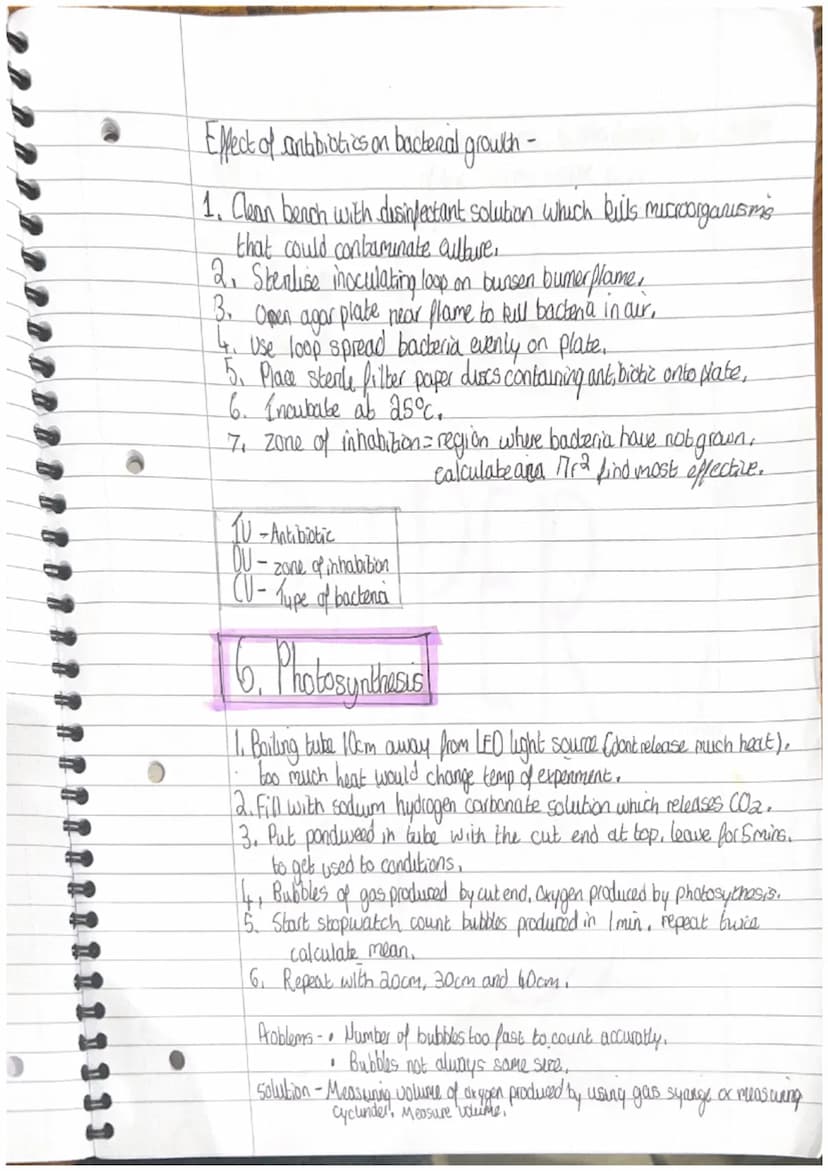 Effect of antibiotics on bacterial growth -
1. Clean bench with disinfectant solution which kills microorganisms
that could contaminate culture.
2. Sterilise inoculating loop on bunsen burner flame.
3. Open agar plate near flame to kill bacteria in air.
4. Use loop spread bacteria evenly on plate.
5. Place sterile filter paper discs containing antibiotic onto plate.
6. Incubate at 25°c.
7. zone of inhabition = region where bacteria have not grown.
calculate area πr² find most effective.
IV - Antibiotic
DV - zone of inhabition
CV - Type of bacteria
6. Photosynthesis
1. Boiling tube 10cm away from LED light source (dont release much heat).
too much heat would change temp of experiment.
2. Fill with sodium hydrogen carbonate solution which releases CO2.
3. Put pondweed in tube with the cut end at top. leave for 5 mins.
to get used to conditions.
4. Bubbles of gas produced by cut end. Oxygen produced by photosythesis.
5. Start stopwatch count bubbles produced in 1 min. repeat twice
calculate mean.
6. Repeat with 20cm, 30cm and 40cm.
Problems - • Number of bubbles too fast to count accuratly.
• Bubbles not always same size.
Solution - Measuring volume of oxygen produced by using gas syringe or measuring
cyclinder. Measure volume.